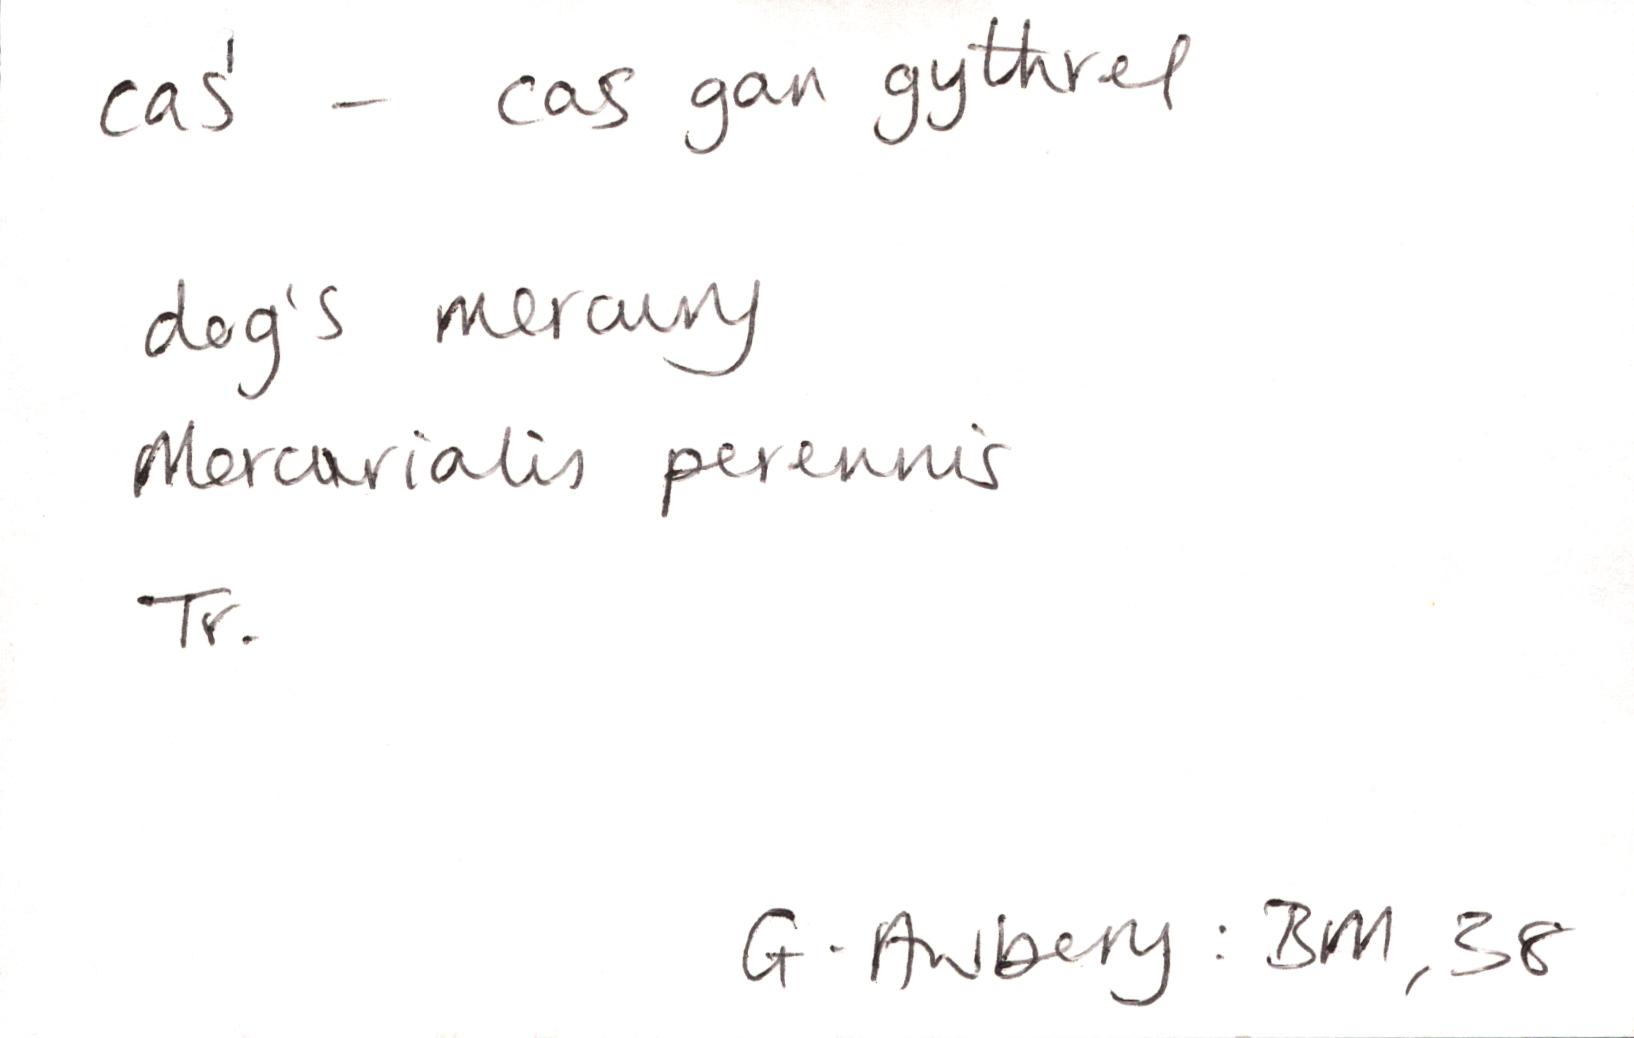 cas¹ - cas gan gythrel
dog's mercury
Mercurialis perennis
Tr.
G. Awbery : BM, 38